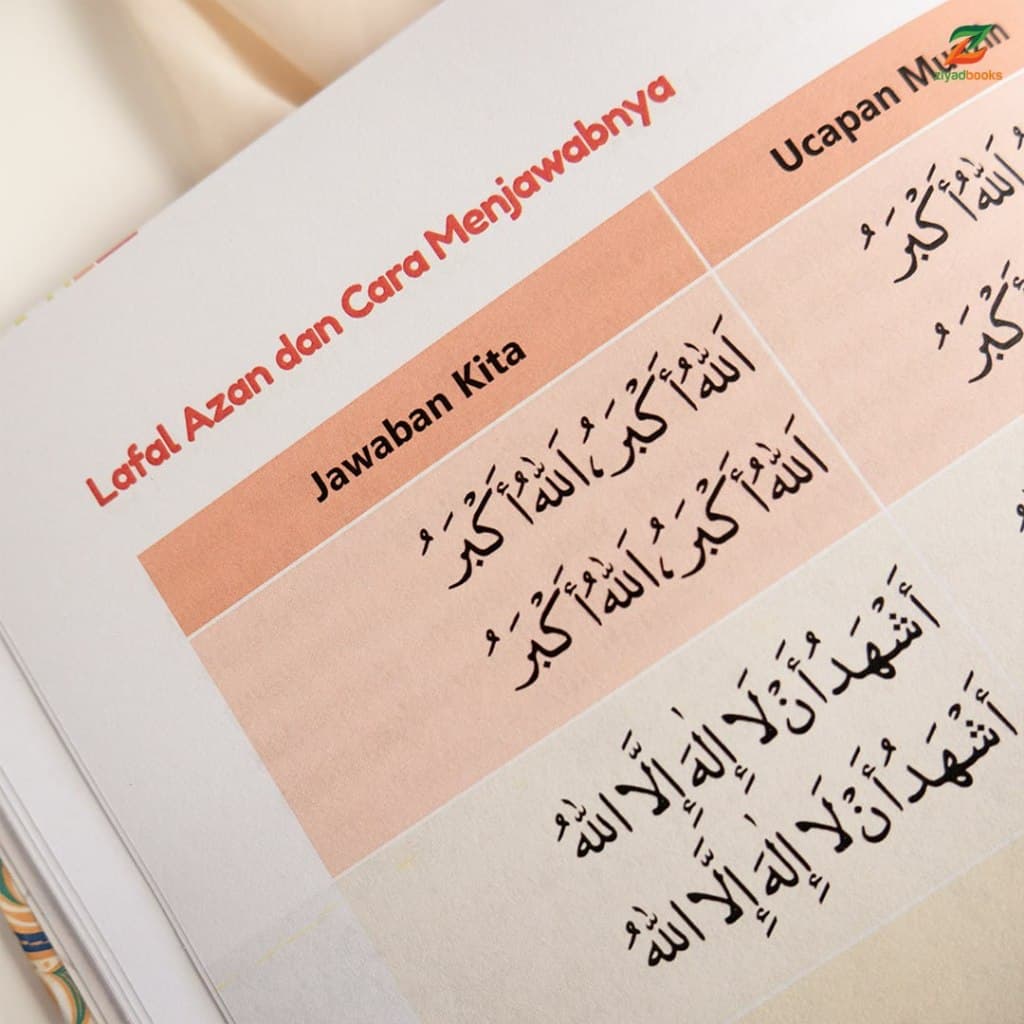 ziyadbooks
Lafal Azan dan Cara Menjawabnya
Jawaban Kita
Ucapan
اَللّٰهُ أَكْبَرُ، اَللّٰهُ أَكْبَرُ
اَللّٰهُ أَكْبَرُ، اَللّٰهُ أَكْبَرُ
أَشْهَدُ أَنْ لَا إِلٰهَ إِلَّا اللّٰهُ
أَشْهَدُ أَنْ لَا إِلٰهَ إِلَّا اللّٰهُ
اللّٰهُ أَكْبَرُ
أَكْبَرُ